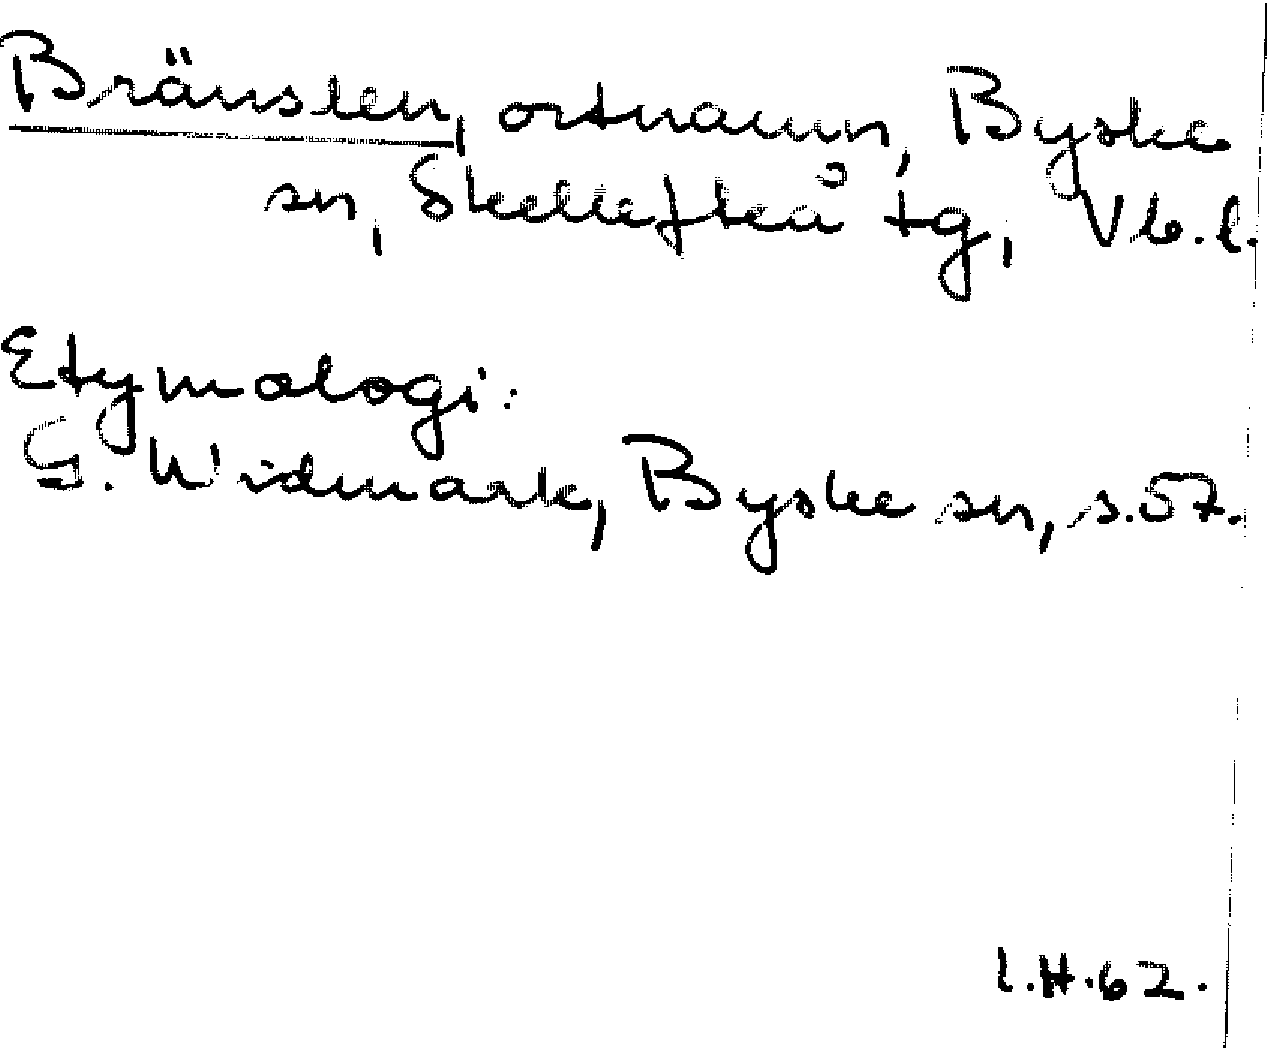 Bränslen, ortnamn, Byske
sn, Skellefteå tg, Vb.l.
Etymologi:
G. Widmark, Byske sn, s.57.
I.H.62.